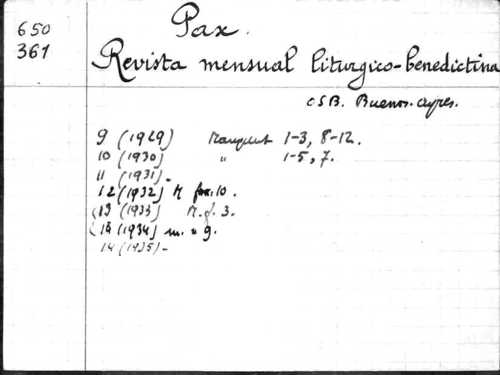 650
361
Pax.
Revista mensual liturgico-benedictina
OSB. Buenos-Ayres.
9 (1929) Manquent 1-3, 8-12.
10 (1930) " 1-5, 7.
11 (1931) -
12 (1932) M fas. 10.
(13 (1933) M. f. 3.
(13 (1934) m. " 9.
14 (1935) -